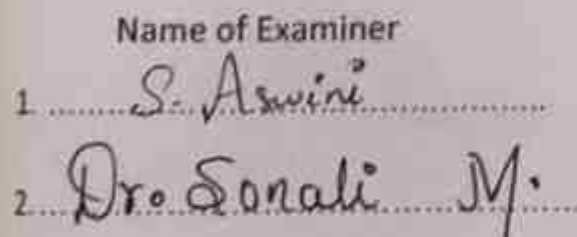 Name of Examiner
1 ........S. Aswini........................
2....Dr. Sonali ...... M. ....